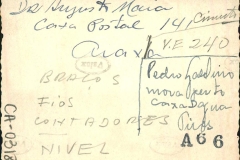 Dr Augusto Maria
Caixa Postal 141,
Araxá V.E 240
BRAÇOS
FIOS
CONTADORES
NIVEL
Pedro
mora perto
caixa d'agua
A66
CA-0318